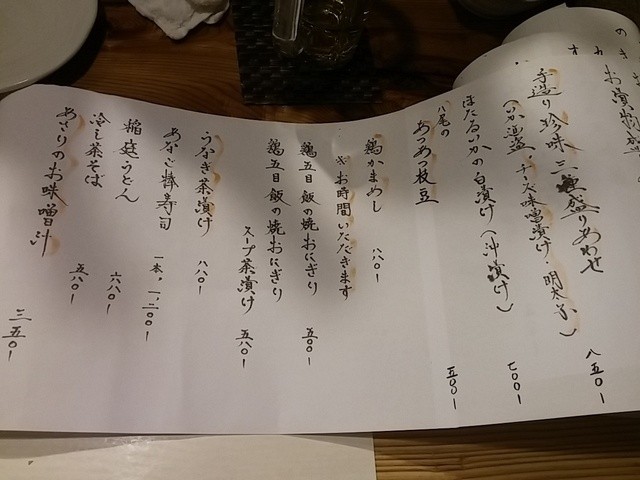 お漬物盛
手造り珍味三種盛りあわせ 八五〇ー
(いか塩盛・チーズ味噌漬け・明太子)
ほたるいかの白漬け(沖漬け) 七〇〇ー
八尾の
あつあつ枝豆 五〇〇ー
鶏かまめし 八八〇ー
※お時間いただきます
鶏五目飯の焼おにぎり 五〇〇ー
鶏五目飯の焼おにぎり
スープ茶漬け 五八〇ー
うなぎ茶漬け 八八〇ー
あなご棒寿司 一本。一、二〇〇ー
稲庭うどん 六八〇ー
冷し茶そば 五八〇ー
あさりのお味噌汁 三五〇ー